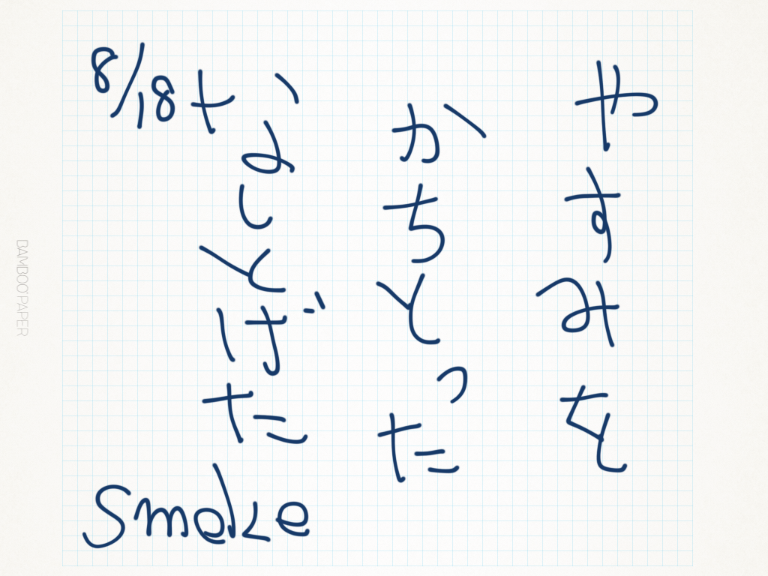 やすみを
かちとった
なしとげた
8/18
smoke
BAMBOO PAPER